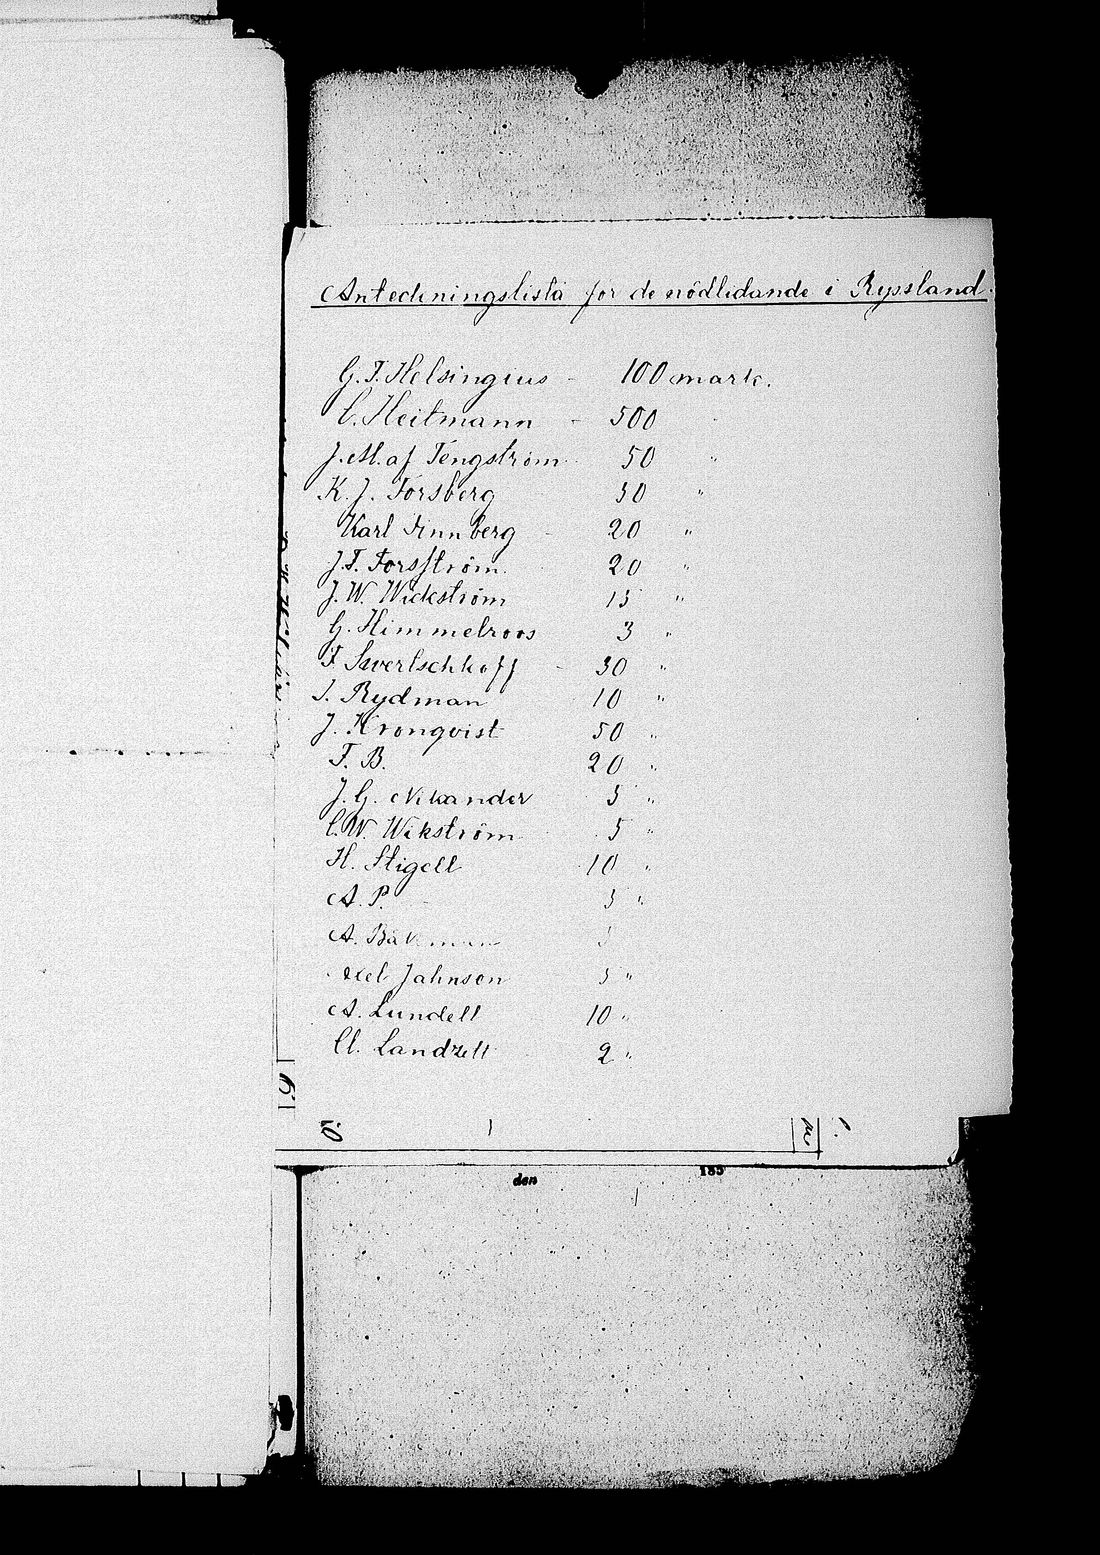 Anteckningslista för de nödlidande i Ryssland.
G. F. Helsingius - 100 mark.
C. Heitmann - 500
J. M. af Tengström 50 "
K. J. Forsberg 50 "
Karl Lönnberg - 20 "
J. F. Forsström. 20 "
J. W. Wickström 15 "
G. Himmelroos 3 "
F. Swertschkoff - 30 "
J. Rydman 10 "
J. Kronqvist 50 "
F. B. 20 "
J. G. Nikander 5 "
C. W. Wikström 5 "
H. Stigell 10 "
A. P. - 5 "
A. Bäckman 5
Axel Jahnson 5 "
A. Lundell 10 "
Cl. Landzett 2 "
den 185